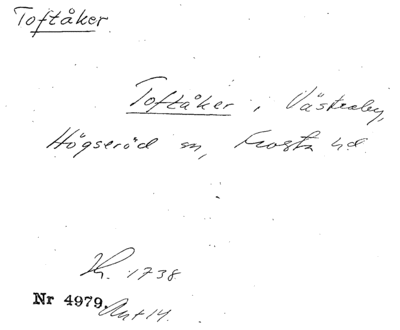 Toftåker
Toftåker, Västraby,
Högseröd sn, Frosta hd.
1738
Nr 4979.